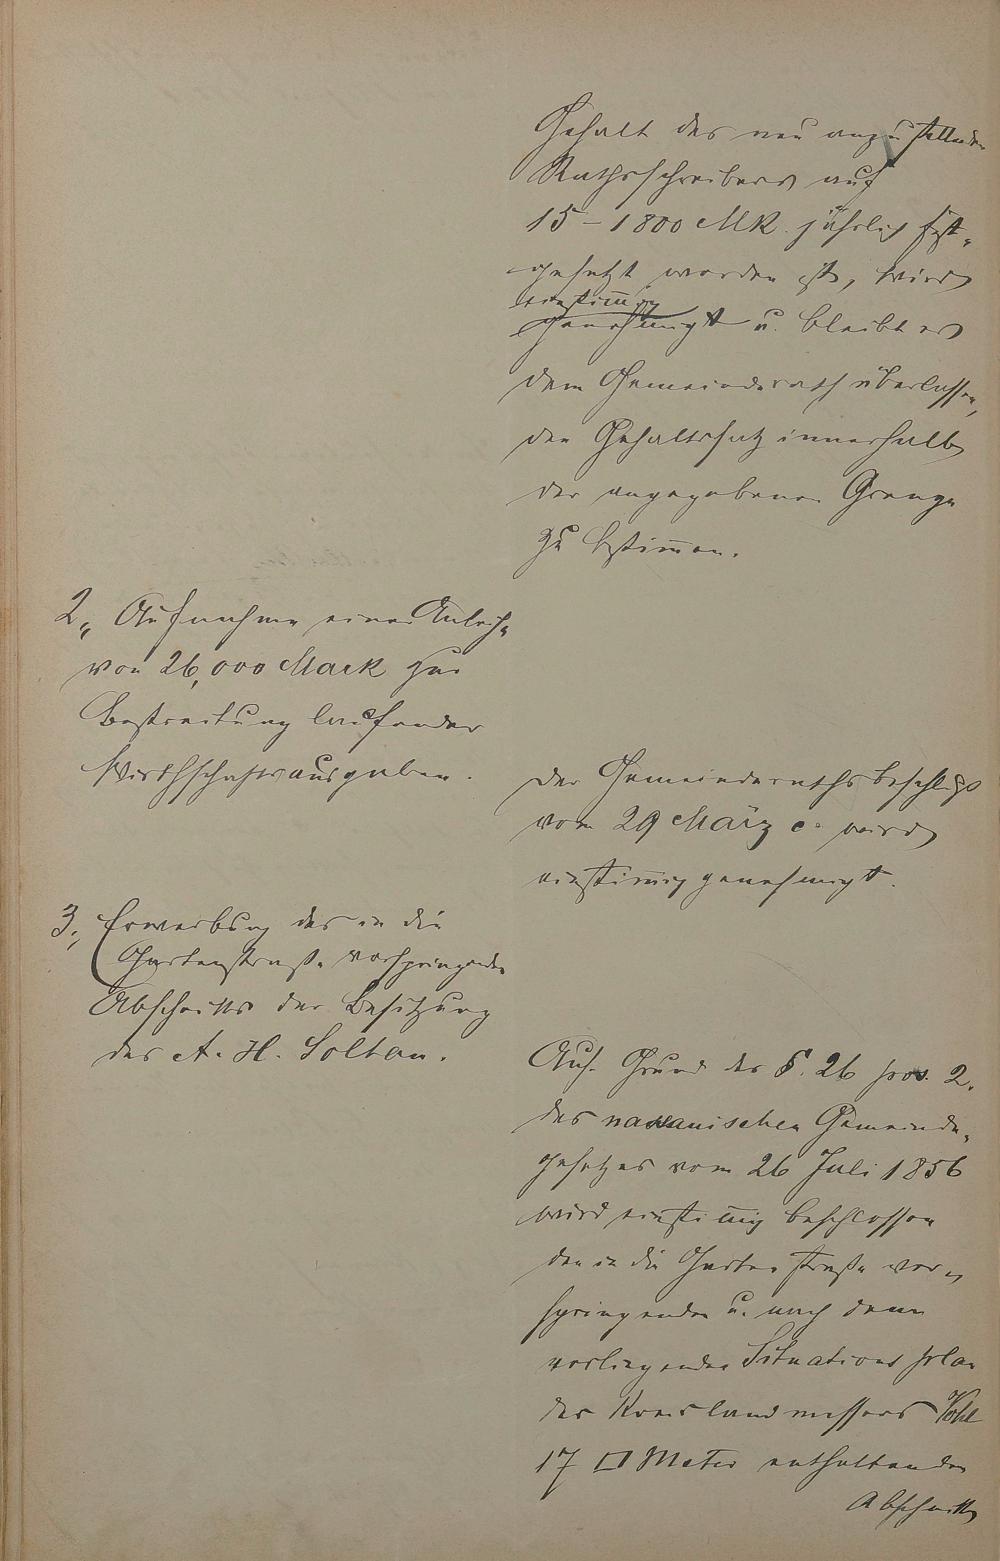 Gehalt des neu anzustellenden
Rathsschreibers auf
15 – 1800 Mk. jährlich fest-
gesetzt worden ist, wird
einstimig
genehmigt u. bleibt es
dem Gemeinderath überlassen,
den Gehaltssatz innerhalb
der angegebenen Grenze
zu bestimen.
2, Aufnahme einer Anleihe
von 26,000 Mark zur
Bestreitung laufender
Wirthschaftsausgaben.
Der Gemeinderathsbeschluss
vom 29 März c. wird
einstimig genehmigt.
3, Erwerbung des in die
Gartenstraße vorspringenden
Abschnitts der Besitzung
des A. H. Soltan.
Auf Grund des §. 26 pos. 2.
des nassauischen Gemeinde-
gesetzes vom 26 Juli 1856
wird einstimig beschlossen
den in die Gartenstraße vor-
springenden u. nach dem
vorliegenden Situationsplan
des Kreislandmessers
17 □ Meter enthaltenden
Abschnitt